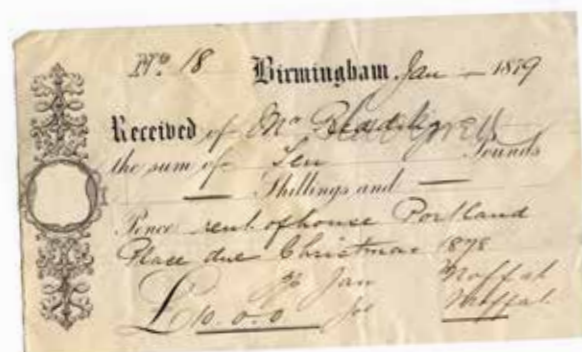 No. 18 Birmingham Jan - 1879
Received of Mr
the sum of Ten Pounds
— Shillings and —
Pence rent of house Portland
Place due Christmas 1878
Jas Moffat
£10.0.0 Moffat